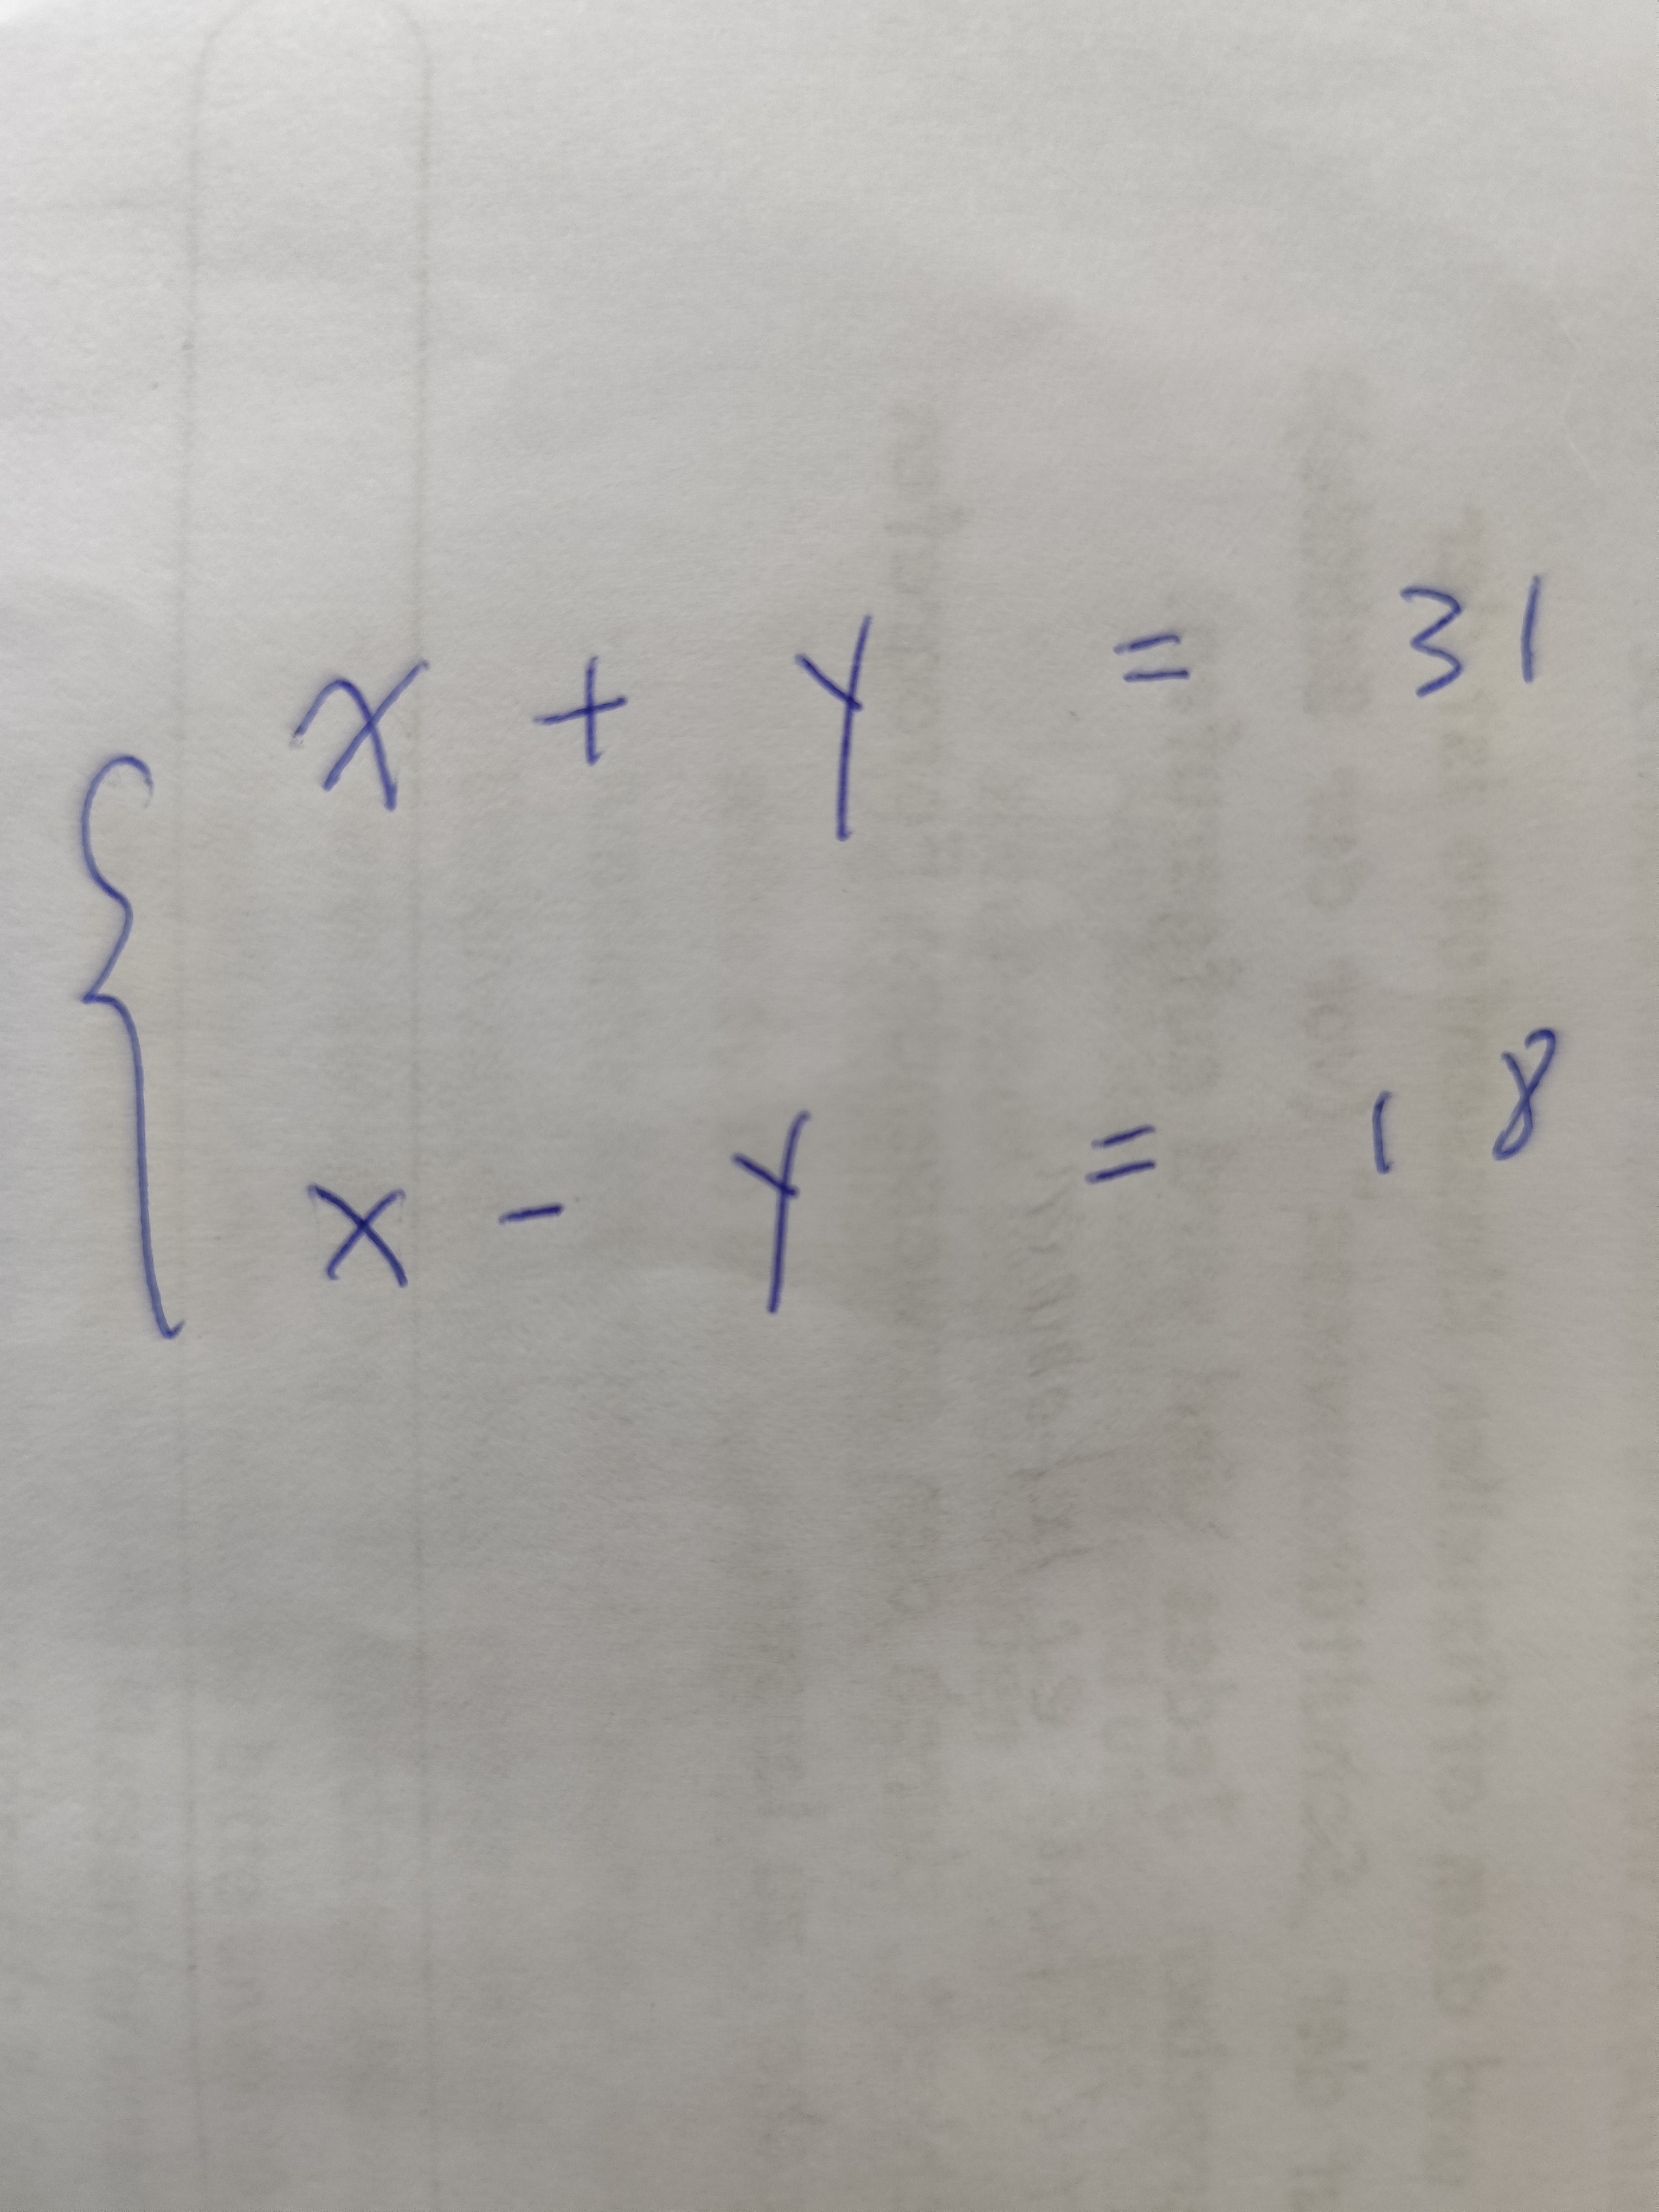 x + y = 31
x - y = 18